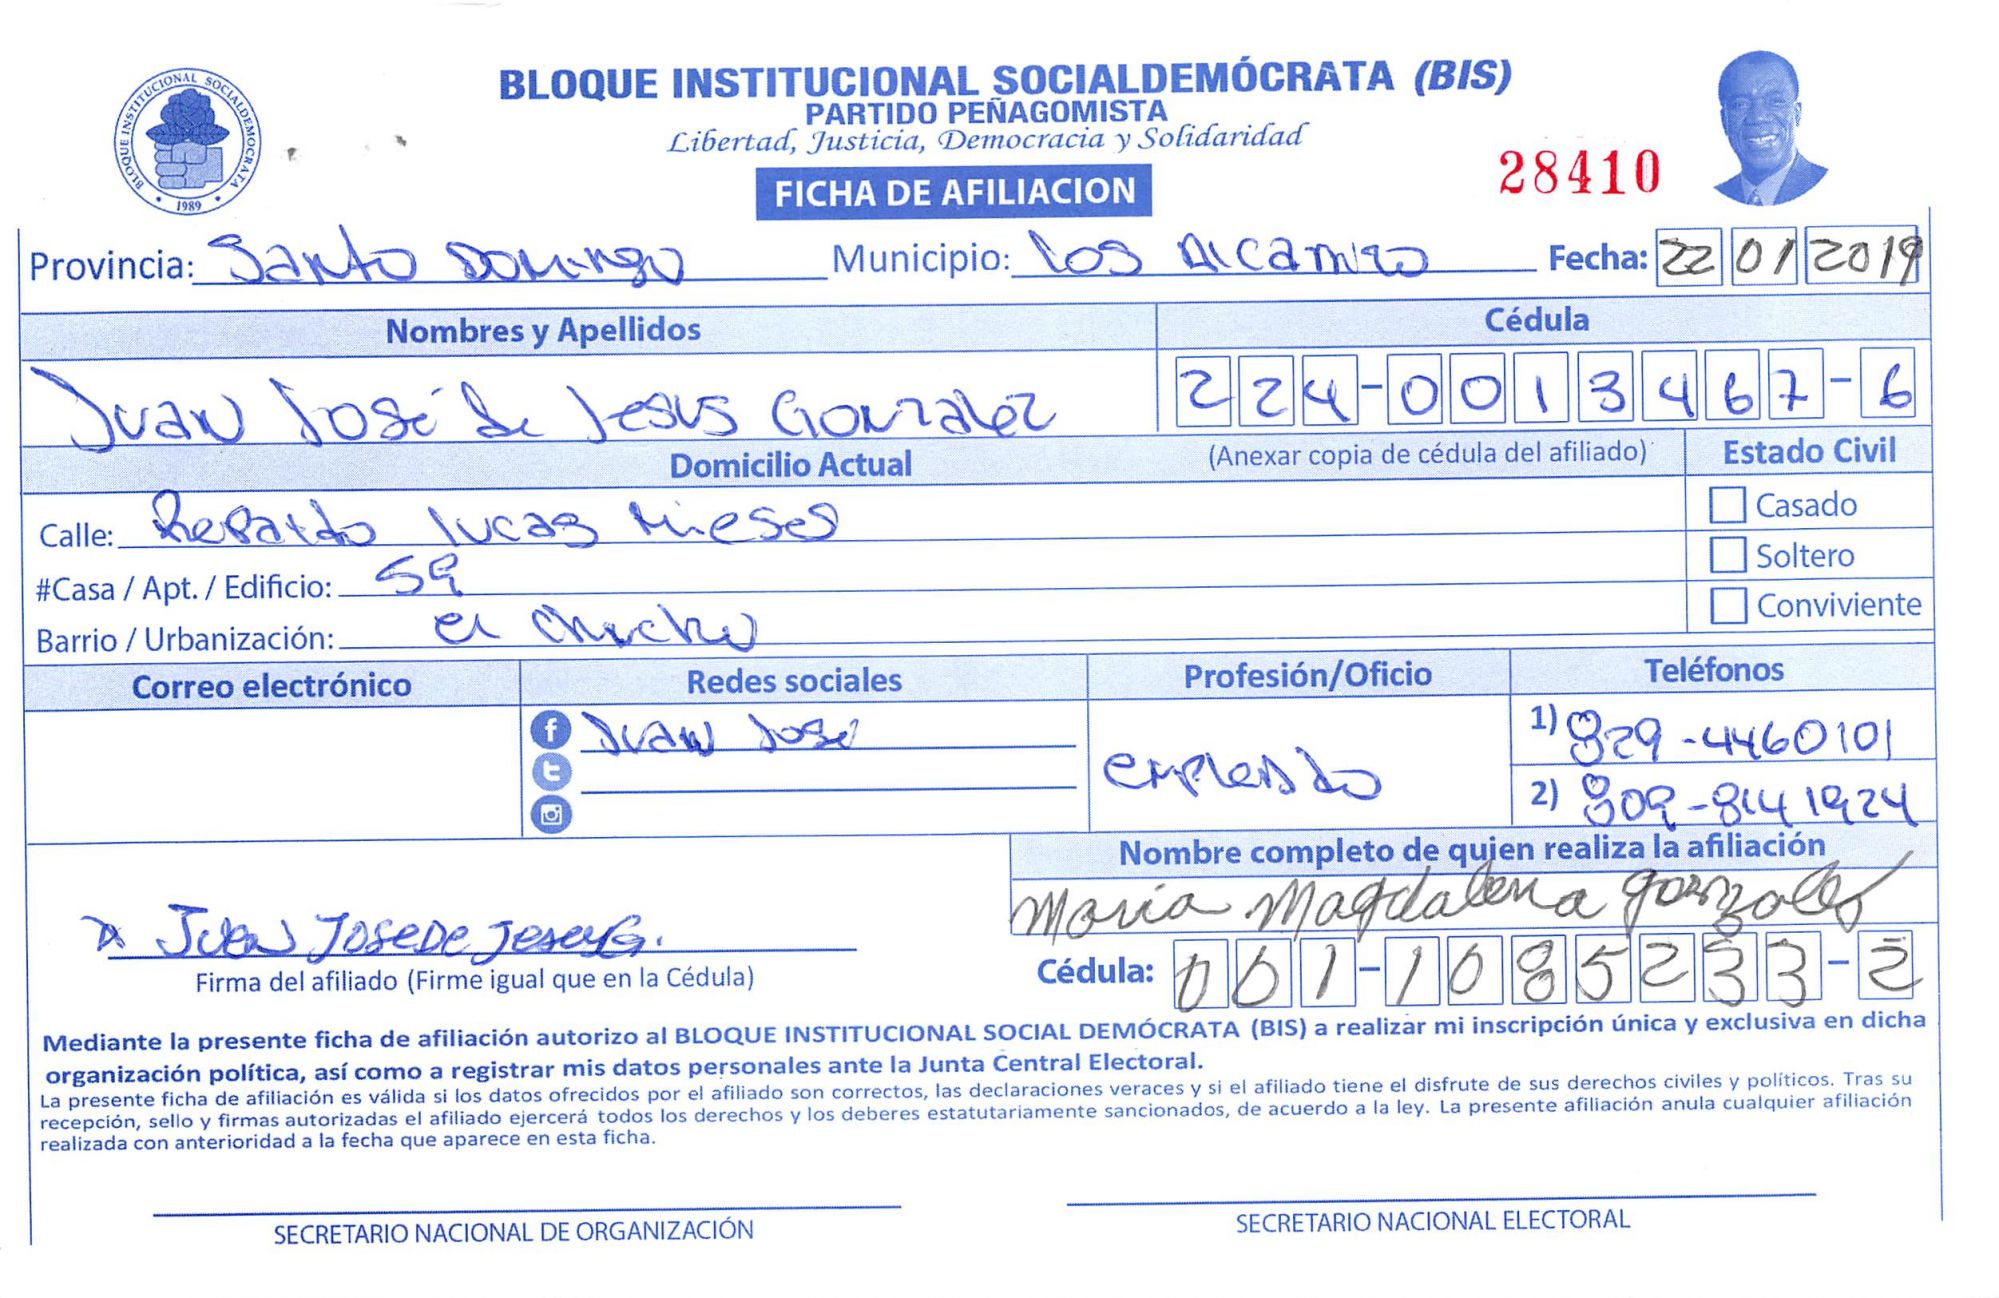 BLOQUE INSTITUCIONAL SOCIALDEMOCRATA
1989
BLOQUE INSTITUCIONAL SOCIALDEMÓCRATA (BIS)
PARTIDO PEÑAGOMISTA
Libertad, Justicia, Democracia y Solidaridad
28410
FICHA DE AFILIACION
Provincia: Santo Domingo Municipio: los Alcarrizo Fecha: 22 01 2019
Nombres y Apellidos Cédula
Juan José de Jesus Gonzalez 224-0013467-6
Domicilio Actual (Anexar copia de cédula del afiliado) Estado Civil
Calle: Reparto lucas Mieses Casado
#Casa / Apt. / Edificio: 59 Soltero
Barrio / Urbanización: el Chucho Conviviente
Correo electrónico Redes sociales Profesión/Oficio Teléfonos
Juan José empleado 1) 829-4460101
2) 809-8141924
Nombre completo de quien realiza la afiliación
Maria Magdalena gonzales
Juan Jose De Jesus G.
Firma del afiliado (Firme igual que en la Cédula) Cédula: 001-1085233-2
Mediante la presente ficha de afiliación autorizo al BLOQUE INSTITUCIONAL SOCIAL DEMÓCRATA (BIS) a realizar mi inscripción única y exclusiva en dicha
organización política, así como a registrar mis datos personales ante la Junta Central Electoral.
La presente ficha de afiliación es válida si los datos ofrecidos por el afiliado son correctos, las declaraciones veraces y si el afiliado tiene el disfrute de sus derechos civiles y políticos. Tras su
recepción, sello y firmas autorizadas el afiliado ejercerá todos los derechos y los deberes estatutariamente sancionados, de acuerdo a la ley. La presente afiliación anula cualquier afiliación
realizada con anterioridad a la fecha que aparece en esta ficha.
SECRETARIO NACIONAL DE ORGANIZACIÓN SECRETARIO NACIONAL ELECTORAL